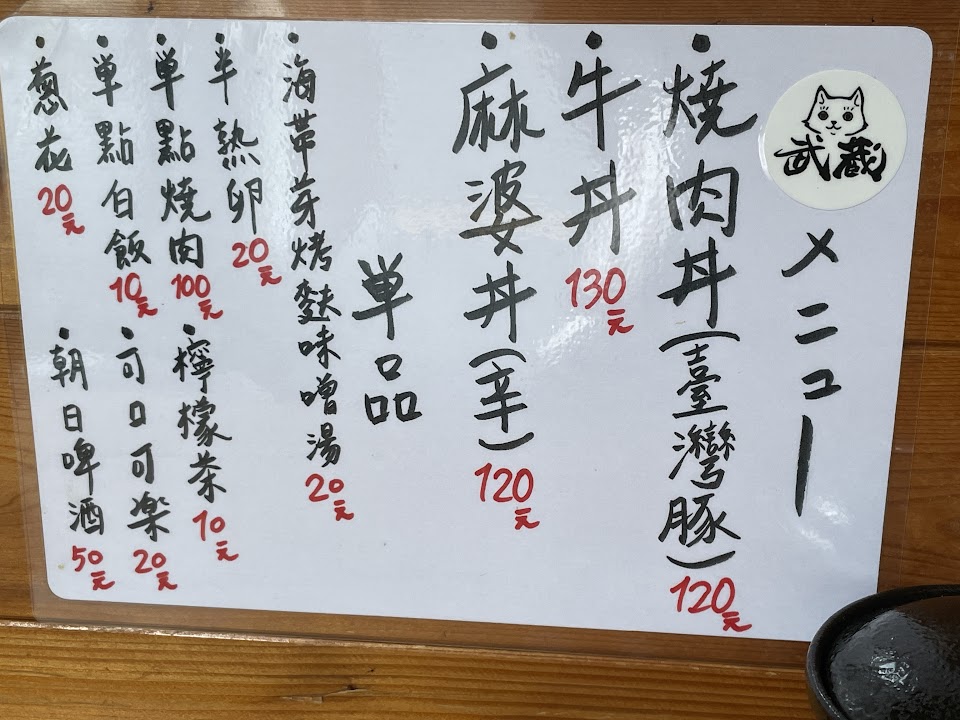 武蔵
メニュー
・燒肉丼(臺灣豚)120元
・牛丼130元
・麻婆丼(辛)120元
単品
・海帯芽烤麩味噌湯20元
・半熟卵20元
・単點燒肉100元
・単點白飯10元
・蔥花20元
・檸檬茶10元
・可口可楽20元
・朝日啤酒50元